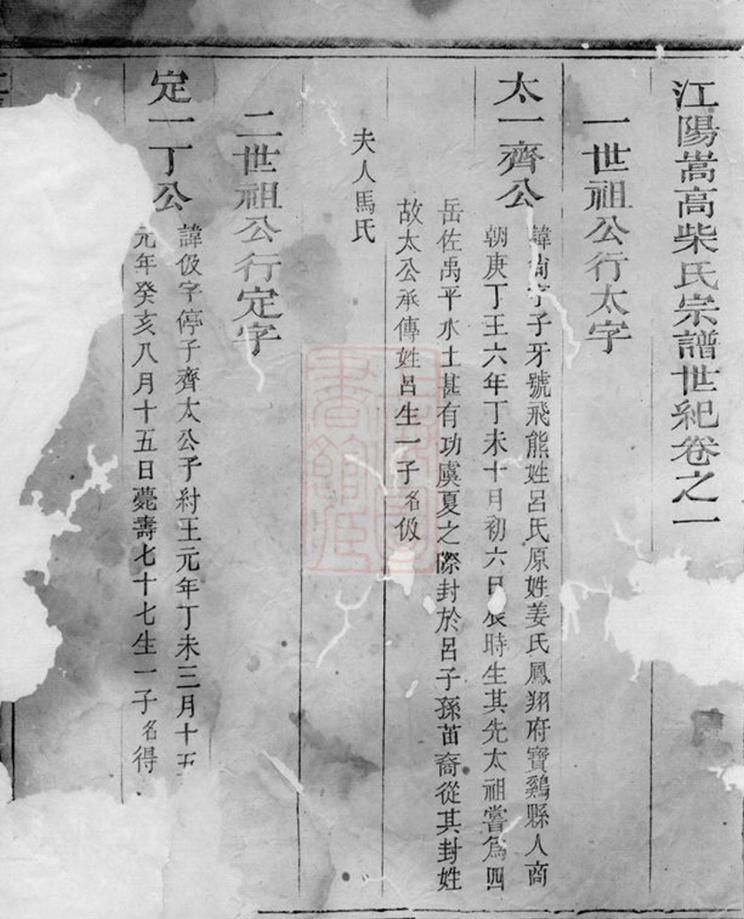 江陽嵩高柴氏宗譜世紀卷之一
一世祖公行太字
太一齊公
諱尚字子牙號飛熊姓呂氏原姓姜氏鳳翔府寶鷄縣人商
朝庚丁王六年丁未十月初六日辰時生其先太祖嘗為四
岳佐禹平水土甚有功虞夏之際封於呂子孫苗裔從其封姓
故太公承傳姓呂生一子名伋
夫人馬氏
二世祖公行定字
定一丁公
諱伋字停子齊太公子紂王元年丁未三月十五
元年癸亥八月十五日薨壽七十七生一子名得